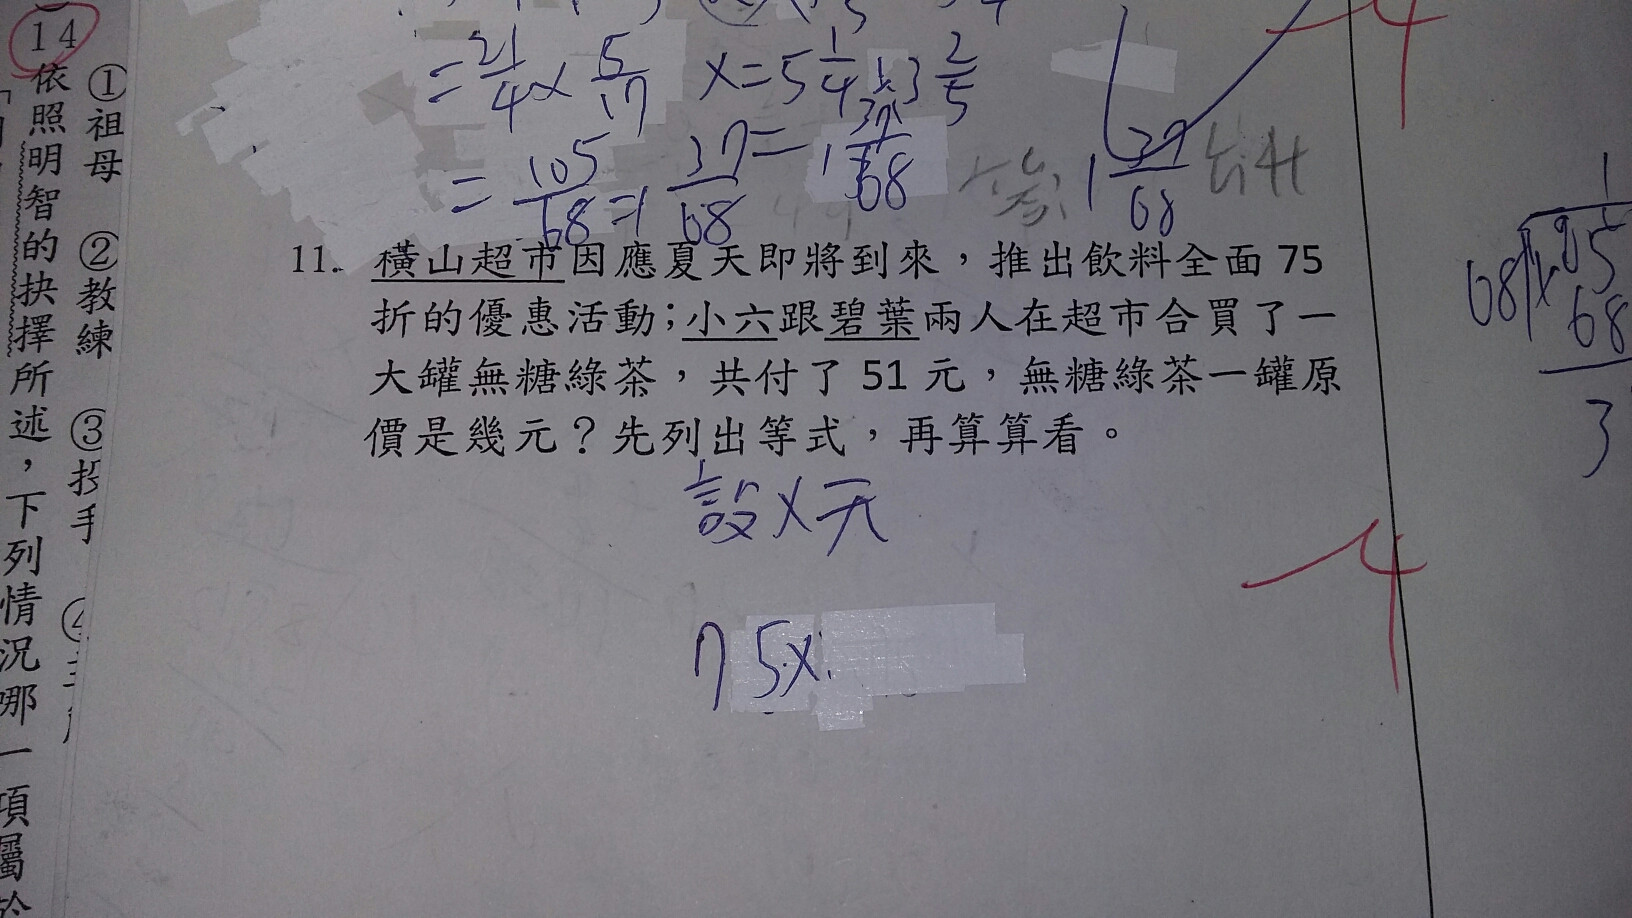 = 21/4 × 5/17 x = 5 1/4 ÷ 3 2/5
= 105/68 = 1 37/68 = 1 37/68
答: 1 37/68 公升
11. 橫山超市因應夏天即將到來，推出飲料全面 75
折的優惠活動；小六跟碧葉兩人在超市合買了一
大罐無糖綠茶，共付了 51 元，無糖綠茶一罐原
價是幾元？先列出等式，再算算看。
設X元
75X
14
依照明智的抉擇所述，下列情況哪一項屬於
①祖母 ②教練 ③投手
1
68 105
68
3